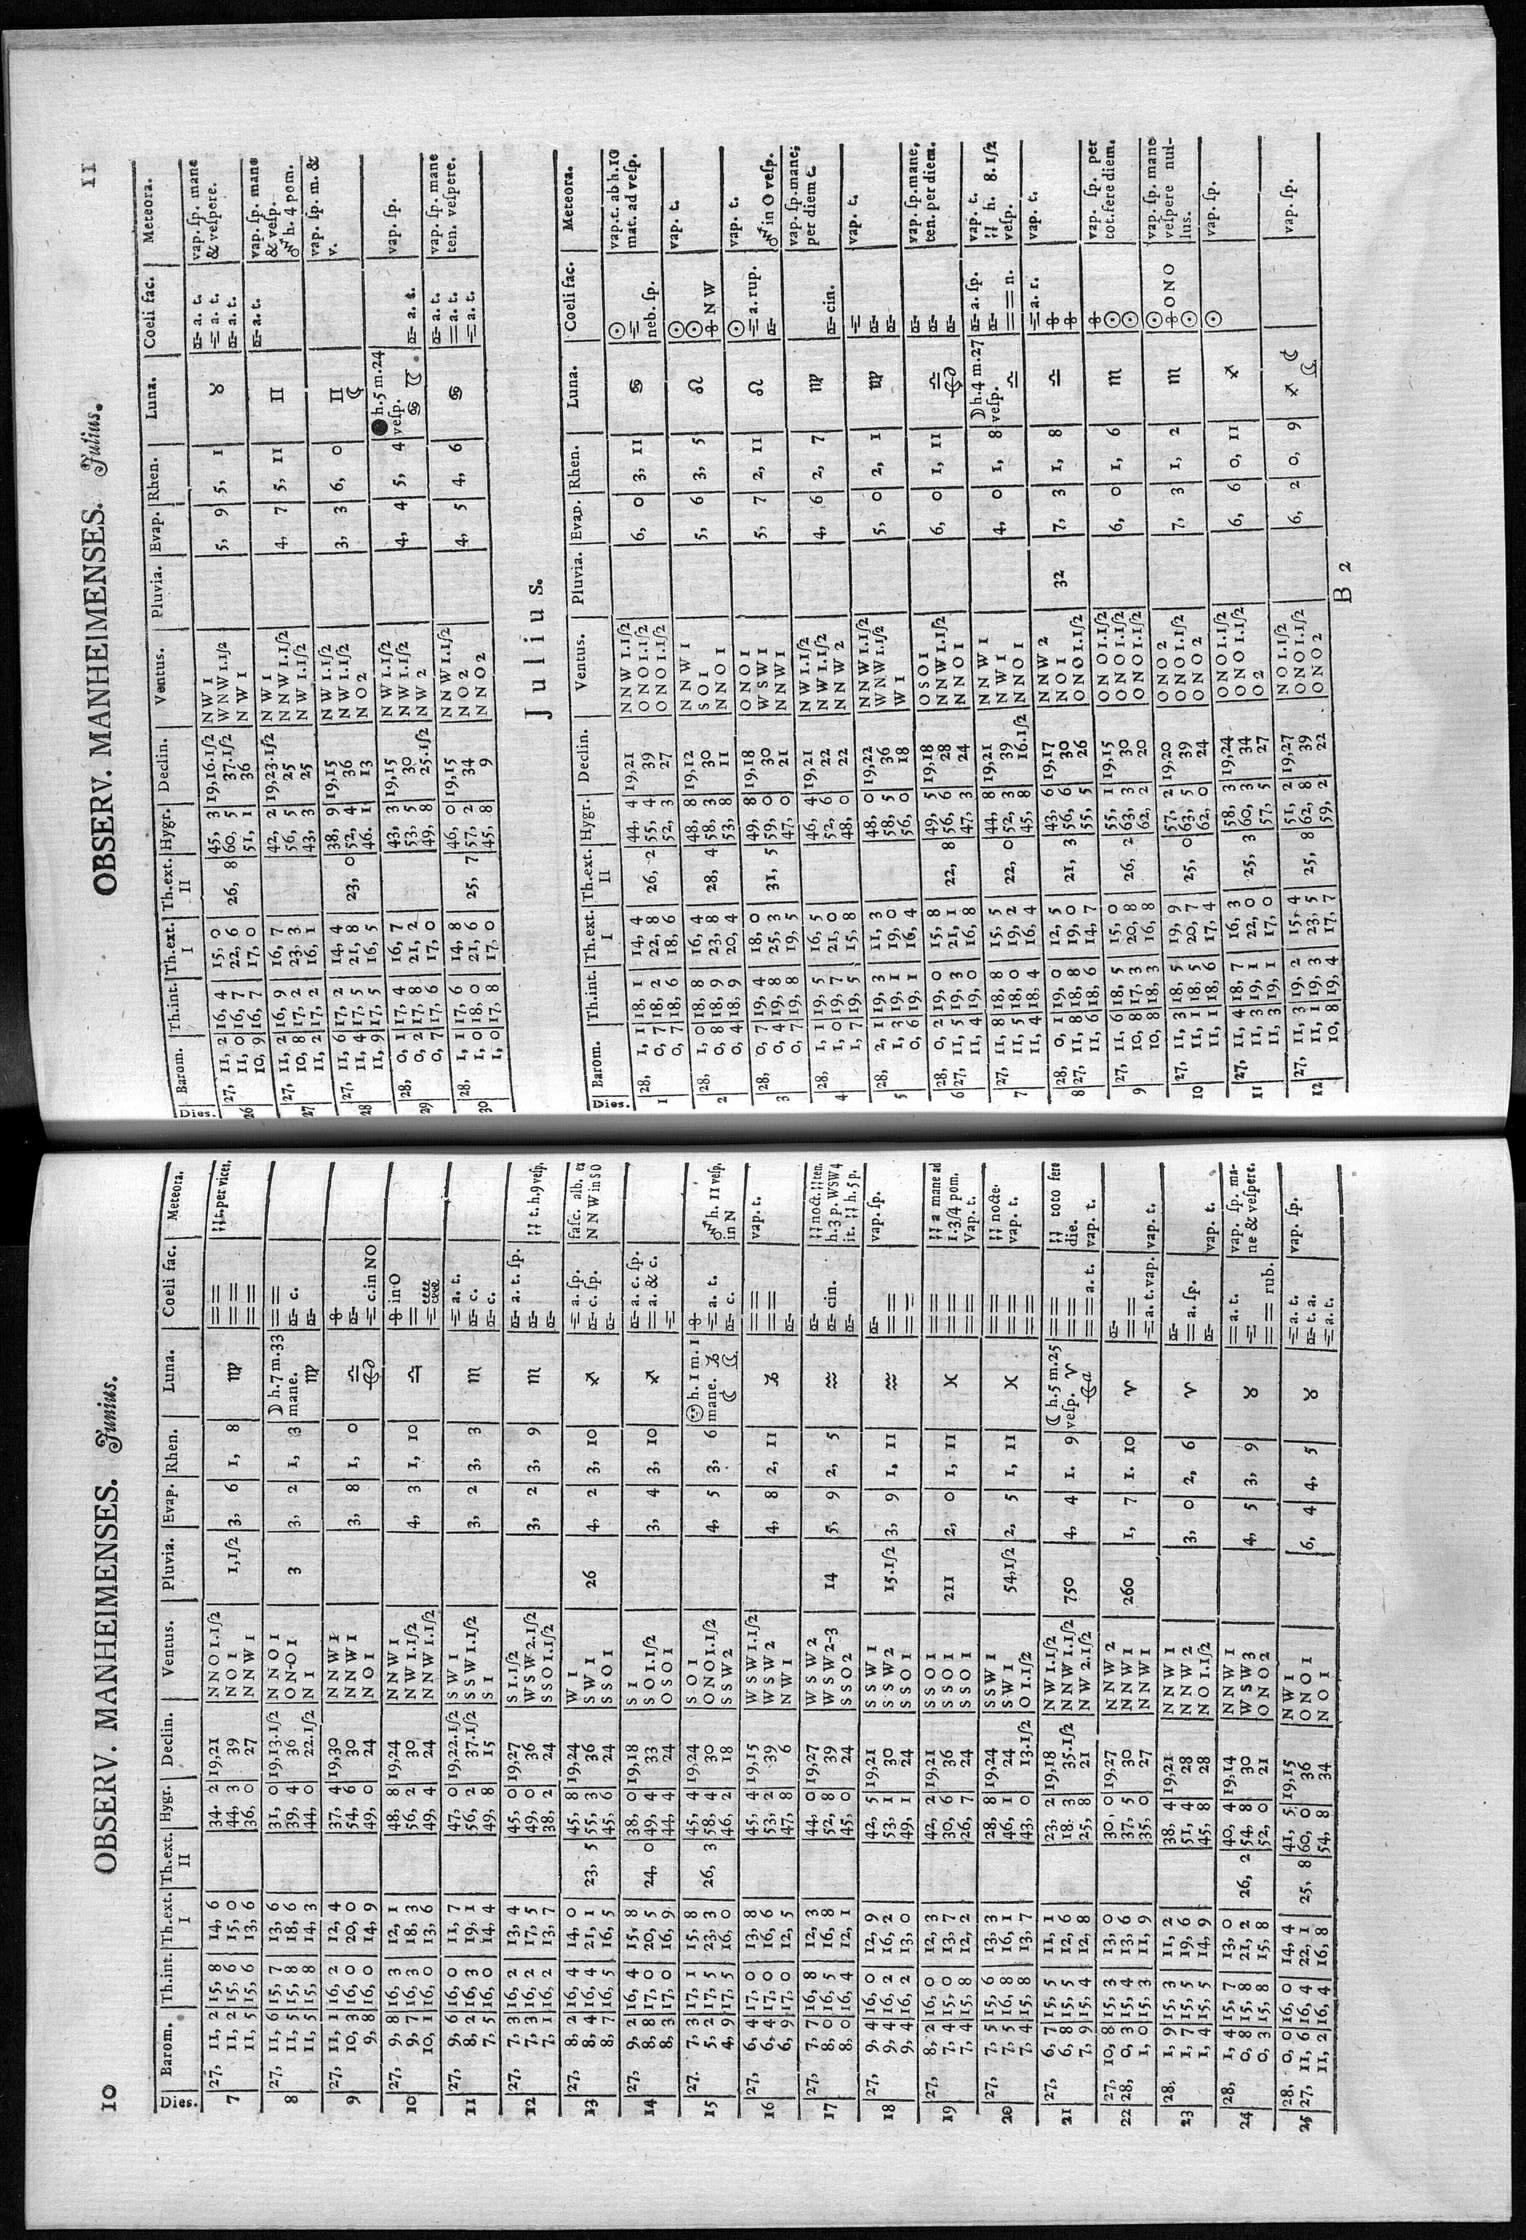 10 OBSERV. MANHEIMENSES. Junius.
Dies. Barom. Th.int. Th.ext. I Th.ext. II Hygr. Declin. Ventus. Pluvia. Evap. Rhen. Luna. Coeli fac. Meteora.
7 27, 11, 2 15, 8 14, 6 34, 2 19,21 N N O 1.1/2 1,1/2 3, 6 1, 8 ♍ = = ⁝⁝ t. per vices.
11, 2 15, 6 15, 0 44, 3 39 N O 1 = =
11, 5 15, 6 13, 6 36, 0 27 N N W 1 = =
8 27, 11, 6 15, 7 13, 6 31, 0 19,13.1/2 N N O 1 3 3, 2 1, 3 ☽ h. 7 m. 33 = =
11, 5 15, 8 18, 6 39, 4 36 O N-O 1 mane. ♍ c.
11, 5 15, 8 14, 3 44, 0 22.1/2 N 1
9 27, 11, 1 16, 2 12, 4 37, 4 19,30 N N W 1 3, 8 1, 0 ♎
10, 3 16, 0 20, 0 54, 6 30 N N W 1
9, 8 16, 0 14, 9 49, 0 24 N O 1 c. in NO
10 27, 9, 8 16, 3 12, 1 48, 8 19,24 N N W 1 4, 3 1, 10 ♎ in O
9, 7 16, 3 18, 3 56, 2 30 N W 1.1/2 =
10, 1 16, 0 13, 6 49, 4 24 N N W 1.1/2
11 27, 9, 6 16, 0 11, 7 47, 0 19,22.1/2 S W 1 3, 2 3, 3 ♏ a. t.
8, 2 16, 3 19, 1 56, 2 37.1/2 S S W 1.1/2 c.
7, 5 16, 0 14, 4 49, 8 15 S 1 c.
12 27, 7, 3 16, 2 13, 4 45, 0 19,27 S 1.1/2 3, 2 3, 9 ♏ a. t. sp. ⁝⁝ t. h. 9 vesp.
7, 3 16, 2 17, 5 49, 0 36 W S W 2.1/2
7, 1 16, 2 13, 7 38, 2 24 S S O 1.1/2
13 27, 8, 2 16, 4 14, 0 45, 8 19,24 W 1 26 4, 2 3, 10 ♐ a. sp. fasc. alb. ex
8, 4 16, 4 21, 1 23, 5 55, 3 36 S W 1 c. sp. N N W in S O
8, 7 16, 5 16, 5 45, 6 24 S S O 1
14 27, 9, 2 16, 4 15, 8 38, 0 19,18 S 1 3, 4 3, 10 ♐ a. c. sp.
8, 8 17, 0 20, 5 24, 0 49, 4 33 S O 1.1/2 = a. & c.
8, 3 17, 0 16, 9 44, 4 24 O S O 1
15 27. 7, 3 17, 1 15, 8 45, 4 19,24 S O 1 4, 5 3, 6 h. 1 m. 1 ♂ h. 11 vesp.
5, 2 17, 5 23, 3 26, 3 58, 4 30 O N O 1.1/2 mane. ♑ a. t. in N
4, 9 17, 5 16, 0 46, 2 18 S S W 2 c.
16 27, 6, 4 17, 0 13, 8 45, 4 19,15 W S W 1.1/2 4, 8 2, 11 ♑ = = vap. t.
6, 4 17, 0 16, 6 53, 2 39 W S W 2 = =
6, 9 17, 0 12, 5 47, 8 6 N W 1
17 27, 7, 7 16, 8 12, 3 44, 0 19,27 W S W 2 14 5, 9 2, 5 ♒ ⁝⁝ noct. ⁝⁝ tem.
8, 0 16, 5 16, 8 52, 8 39 W S S W 2-3 cin. h. 3 p. WSW 4
8, 0 16, 4 12, 1 45, 0 24 S S O 2 it. ⁝⁝ h. 5 p.
18 27, 9, 4 16, 0 12, 9 42, 5 19,21 S S W 1 15.1/2 3, 9 1, 11 ♒ vap. sp.
9, 4 16, 2 16, 2 53, 1 30 S S W 2 = =
9, 4 16, 2 13, 0 49, 1 24 S S O 1 = =
19 27, 8, 2 16, 0 12, 3 42, 2 19,21 S S O 1 211 2, 0 1, 11 ♓ = = ⁝⁝ a mane ad
7, 4 15, 0 13, 7 30, 6 36 S S O 1 = = 1.3/4 pom.
7, 4 15, 8 12, 2 26, 7 24 S S O 1 = = Vap. t.
20 27, 7, 5 15, 6 13, 3 28, 8 19,24 S S W 1 54,1/2 2, 5 1, 11 ♓ = = ⁝⁝ nocte.
7, 5 16, 8 16, 1 46, 1 24 S W 1 = = vap. t.
7, 4 15, 8 13, 7 43, 0 13.1/2 O 1.1/2 = =
21 27, 6, 7 15, 5 11, 1 23, 2 19,18 N W 1.1/2 750 4, 4 1. 9 ☾ h. 5 m. 25 = = ⁝⁝ toto fere
6, 8 15, 5 12, 6 18. 3 35.1/2 N N W 1.1/2 vesp. ♈ = = die.
7, 9 15, 4 12, 8 25, 8 21 N W 2.1/2 = = a. t. vap. t.
22 27, 10, 8 15, 3 13, 0 30, 0 19,27 N N W 2 260 1, 7 1. 10 ♈
28, 0, 3 15, 4 13, 6 37, 5 30 N N W 1 = =
1, 0 15, 3 11, 9 35, 0 27 N N W 1 = a. t. vap. vap. t.
23 28, 1, 9 15, 3 11, 2 38, 4 19,21 N N W 1 3, 0 2, 6 ♈
1, 7 15, 5 19, 6 51, 4 28 N N W 2 = a. sp.
1, 4 15, 5 14, 9 45, 8 28 N O 1.1/2 vap. t.
24 28, 1, 4 15, 7 13, 0 40, 4 19,14 N N W 1 4, 5 3, 9 ♉ = a. t. vap. sp. ma-
0, 8 15, 8 21, 2 26, 2 54. 8 30 W S W 3 ne & vespere.
0, 3 15, 8 15, 8 52, 0 21 O N O 2 = = rub.
25 28, 0, 0 16, 0 14, 4 41, 5 19,15 N W 1 6, 4 4, 5 ♉ a. t. vap. sp.
27, 11, 6 16, 4 22, 1 25, 8 60, 0 36 O N O 1 t. a.
11, 2 16, 4 16, 8 54, 8 34 N O 1 a. t.
OBSERV. MANHEIMENSES. Julius. 11
Dies. Barom. Th.int. Th.ext. I Th.ext. II Hygr. Declin. Ventus. Pluvia. Evap. Rhen. Luna. Coeli fac. Meteora.
26 27, 11, 2 16, 4 15, 0 45, 3 19,16.1/2 N W 1 5, 9 5, 1 ♉ a. t. vap. sp. mane
11, 0 16, 7 22, 6 26, 8 60, 5 37.1/2 W N W 1.1/2 a. t. & vespere.
10, 9 16, 7 17, 0 51, 1 36 N W 1 a. t.
27 27, 11, 2 16, 9 16, 7 42, 2 19,23.1/2 N W 1 4, 7 5, 11 ♊ a. t. vap. sp. mane
10, 8 17, 2 23, 3 56, 5 25 N N W 1.1/2 & vesp.
11, 2 17, 2 16, 1 43, 3 25 N W 1.1/2 ♂ h. 4 pom.
28 27, 11, 6 17, 2 14, 4 38, 9 19,15 N W 1.1/2 3, 3 6, 0 ♊ vap. sp. m. &
11, 4 17, 5 21, 8 23, 0 52, 4 36 N W 1.1/2 v.
11, 9 17, 5 16, 5 46. 1 13 N O 2
29 28, 0, 1 17, 4 16, 7 43, 3 19,15 N W 1.1/2 4, 4 5, 4 ● h. 5 m. 24
0, 2 17, 8 21, 2 53, 5 30 N W 1.1/2 vesp. vap. sp.
0, 7 17, 6 17, 0 49, 8 25.1/2 N W 2 ♋ a. t.
30 28, 1, 1 17, 6 14, 8 46, 0 19,15 N N W 1.1/2 4, 5 4, 6 ♋ a. t. vap. sp. mane
1, 0 18, 0 21, 6 25, 7 57, 2 34 N O 2 = a. t. ten. vespere.
1, 0 17, 8 17, 0 45, 8 9 N N O 2 a. t.
Julius.
Dies. Barom. Th.int. Th.ext. I Th.ext. II Hygr. Declin. Ventus. Pluvia. Evap. Rhen. Luna. Coeli fac. Meteora.
1 28, 1, 1 18, 1 14, 4 44, 4 19,21 N N W 1.1/2 6, 0 3, 11 ♋ ☉ vap. t. ab h. 10
0, 7 18, 2 22, 8 26, 2 55, 4 39 O N O 1.1/2 mat. ad vesp.
0, 7 18, 6 18, 6 52, 3 27 O N O 1.1/2 neb. sp.
2 28, 1, 0 18, 8 16, 4 48, 8 19,12 N N W 1 5, 6 3, 5 ♌ ☉ vap. t.
0, 8 18, 9 23, 8 28, 4 58, 3 30 S O 1 ☉
0, 4 18, 9 20, 4 53, 8 11 N N O 1 N W
3 28, 0, 7 19, 4 18, 0 49, 8 19,18 O N O 1 5, 7 2, 11 ♌ ☉ vap. t.
0, 4 19, 8 25, 3 31, 5 59, 0 30 W S W 1 a. rup. ♂ in O vesp.
0, 7 19, 8 19, 5 47, 0 21 N N W 1
4 28, 1, 1 19, 5 16, 5 46, 4 19,21 N W 1.1/2 4, 6 2, 7 ♍ vap. sp. mane;
1, 0 19, 7 21, 0 52, 6 22 N W 1.1/2 per diem t.
1, 7 19, 5 15, 8 48, 0 22 N N W 2 cin.
5 28, 2, 1 19, 3 11, 3 48, 0 19,22 N N W 1.1/2 5, 0 2, 1 ♍ vap. t.
1, 3 19, 1 19, 0 58, 5 36 W N W 1.1/2
0, 6 19, 1 16, 4 56, 0 18 W 1
6 28, 0, 2 19, 0 15, 8 49, 5 19,18 O S O 1 6, 0 1, 11 ♎ vap. sp. mane,
27, 11, 5 19, 3 21, 1 22, 8 56, 6 28 N N W 1.1/2 ten. per diem.
11, 4 19, 0 16, 8 47, 3 24 N N O 1
7 27, 11, 8 18, 8 15, 5 44, 8 19,21 N N W 1 4, 0 1, 8 ☽ h. 4 m. 27 a. sp. vap. t.
11, 5 18, 0 19, 2 22, 0 52, 3 39 N W 1 vesp. ♎ ⁝⁝ h. 8. 1/2
11, 4 18, 4 16, 4 45, 8 16.1/2 N N O 1 = = n. vesp.
8 28, 0, 1 19, 0 12, 5 43, 6 19,17 N N W 2 32 7, 3 1, 8 ♎ a. r. vap. t.
27, 11, 8 18, 8 19, 0 21, 3 56, 6 30 N O 1
11, 6 18, 6 14, 7 55, 5 26 O N O 1.1/2
9 27, 11, 6 18, 5 15, 0 55, 1 19,15 O N O 1.1/2 6, 0 1, 6 ♏ vap. sp. per
10, 8 17, 3 20, 8 26, 2 63, 3 30 O N O 1.1/2 ☉ tot. fere diem.
10, 8 18, 3 16, 8 62, 2 20 O N O 1.1/2 ☉
10 27, 11, 3 18, 5 19, 9 57, 2 19,20 O N O 2 7, 3 1, 2 ♏ ☉ vap. sp. mane
11, 1 18, 5 20, 7 25, 0 63, 5 39 O N O 1.1/2 O N O vespere nul-
11, 1 18, 6 17, 4 62, 0 24 O N O 2 ☉ lus.
11 27, 11, 4 18, 7 16, 3 58, 3 19,24 O N O 1.1/2 6, 6 0, 11 ♐ ☉ vap. sp.
11, 3 19, 1 22, 0 25, 3 60, 3 34 O N O 1.1/2
11, 3 19, 1 17, 0 57, 5 27 O 2
12 27, 11, 3 19, 2 15, 4 51, 2 19,27 N O 1.1/2 6, 2 0, 9 ♐ vap. sp.
11, 1 19, 3 23, 5 25, 8 62, 8 39 O N O 1.1/2
10, 8 19, 4 17, 7 59, 2 22 O N O 2
B 2